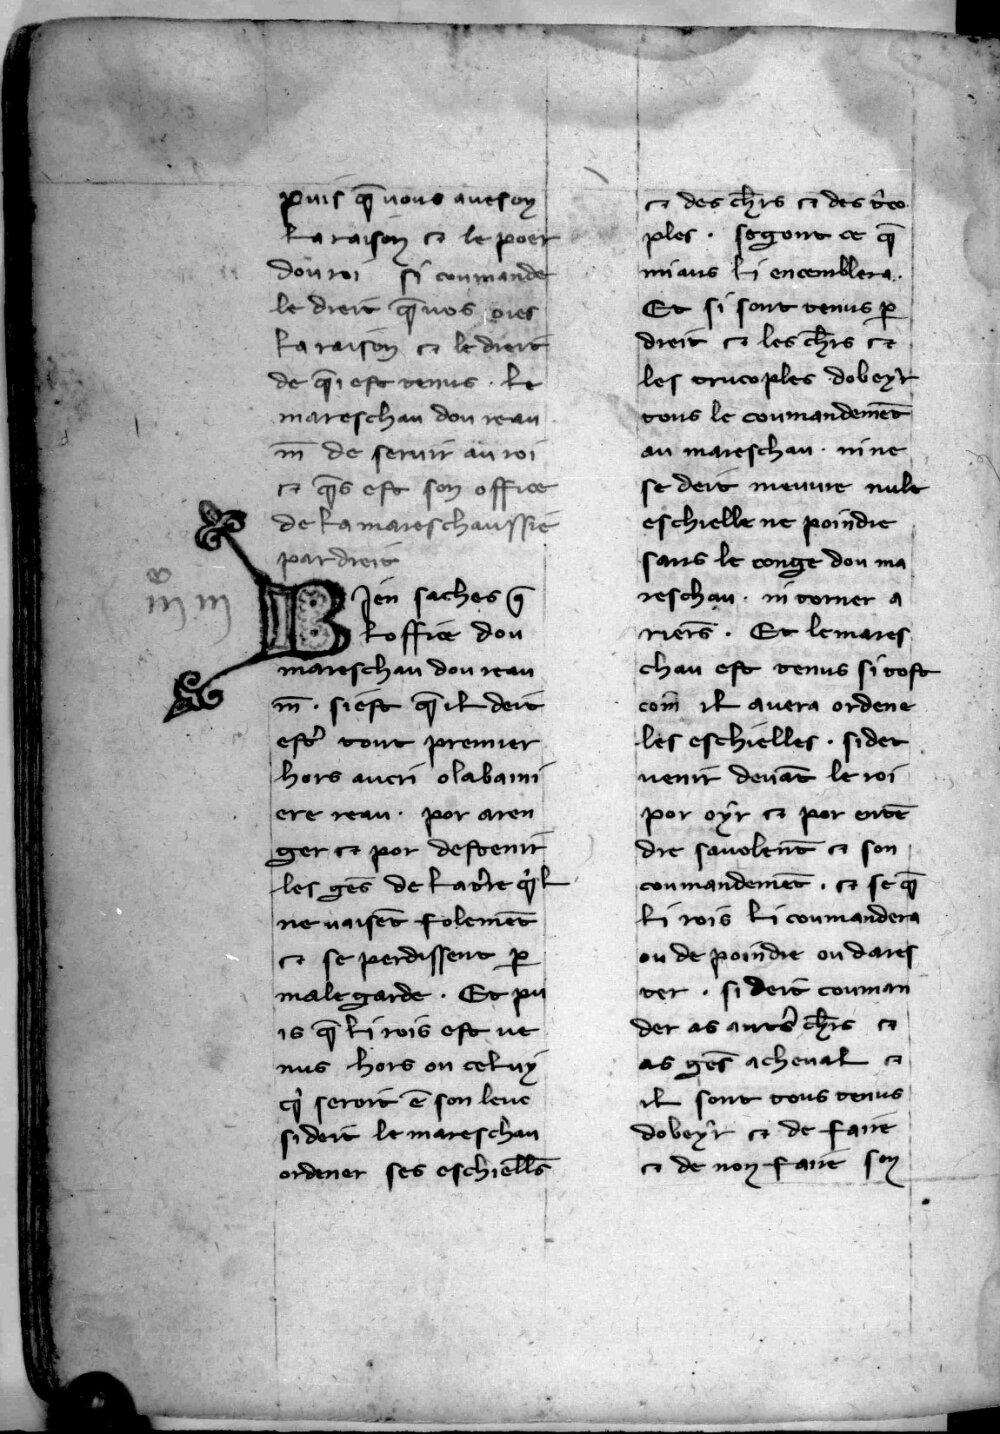 puis q̄ vous aves oy
la raison ⁊ le poer
dou roi si coumande
le dreit q̄ vos oies
la raison ⁊ le dreit
de q̄i est tenus · le
mareschau dou reau
m̄ de servir au roi
⁊ q̄s est son office
de la mareschaussie
par dreit
Bien saches q̄
l office dou
mareschau dou reau
m̄ · si est q̄ il deit
estr̉ tout premier
hors au cri o la bani
ere reau · por aren
ger ⁊ por destenir
les gēs de la t̉re q̉l
ne vaisēt folemēt
⁊ se perdissent p̱
male garde · Et pu
is q̄ li rois est ve
nus hors ou celuy
q̉ seroit ē son leuc
si deit le mareschau
ordener ses eschiell̄s
⁊ des ch̄rs ⁊ des t̉co
ples · segont ce q̄
miaus li encemblera ·
Et si sont tenus p̱
dreit ⁊ les ch̄rs ⁊
les trucoples d obeyr
tous le coumandemēt
au mareschau · ni ne
se deit meuvre nule
eschielle ne poindre
sans le conge dou ma
reschau · ni torner a
riers · Et le mares
chau est tenus si tost
com il avera ordene
les eschielles · si det
venir devāt le roi
por oyr ⁊ por entē
dre sa volenté ⁊ son
coumandemēt · ⁊ se q̄
li rois li coumandera
ou de poindre ou d ares
ter · si deit couman
der as autr̉s ch̄rs ⁊
as gēs a cheval ⁊
il sont tous tenus
d obeyr ⁊ de faire
⁊ de non faire son